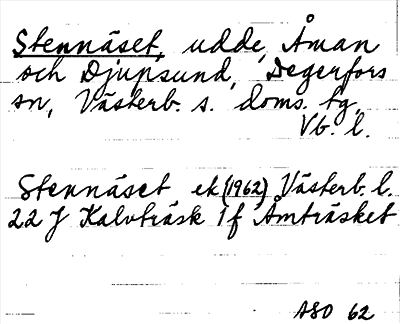 Stennäset, udde, Åman
och Djupsund, Degerfors
sn, Västerb. s. doms. tg,
Vb. l.
Stennäset ek (1962) Västerb. l.
22 J Kalvträsk 1f Åmträsket
ASO 62